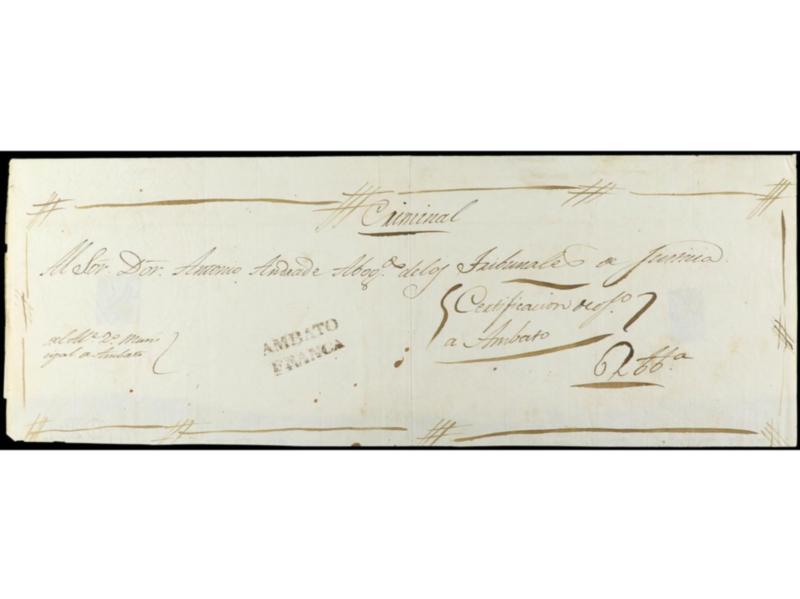 Criminal
Al Sor. Dor. Antonio Andrade Abogo. de los Tribunales de Justicia.
Certificacion de ofo.
a Ambato
del Me. 2o. Muni
cipal de Ambato
AMBATO
FRANCA